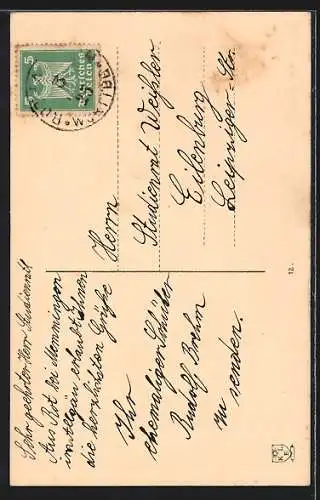 Sehr geehrter Herr Studienrat
Aus Rot bei Memmingen
im Allgäu erlaubt Ihnen
die herzlichsten Grüße
Ihr
ehemaliger Schüler
Rudolf Brehm
zu senden.
Herrn
Studienrat Weißler
Eilenburg
Leipziger-Str.
Deutsches
Reich
5
5
12.